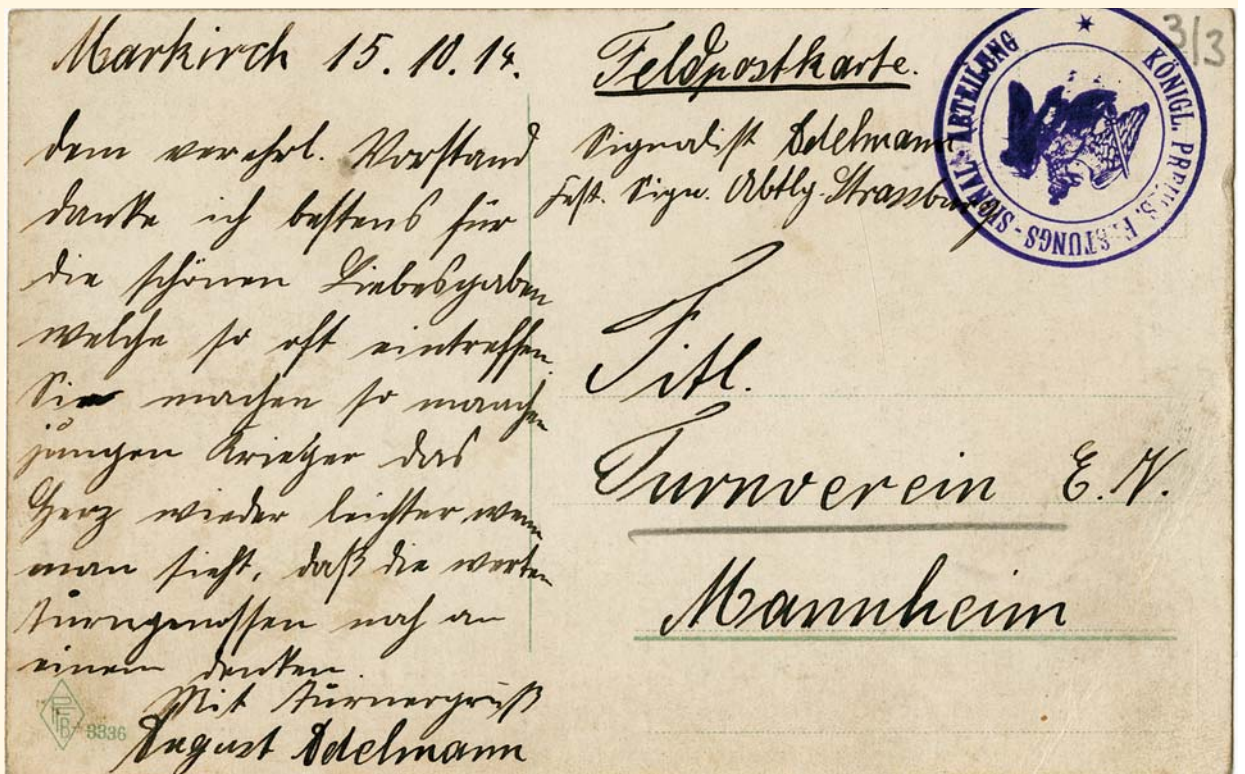 Markirch 15. 10. 14.
Dem verehrl. Vorstand
danke ich bestens für
die schönen Liebesgaben
welche so oft eintreffen.
Sie machen so manchen
jungen Krieger das
Herz wieder leichter wenn
man sieht, daß die werten
Turngenossen noch an
einem denken.
Mit Turnergruß
August Edelmann
PFB
3336
Feldpostkarte.
Signalist Edelmann
Fest. Sign. Abtlg. Strassburg
Titl.
Turnverein E. V.
Mannheim
KÖNIGL. PREUSS. FESTUNGS-SIGNAL-ABTEILUNG
3/3